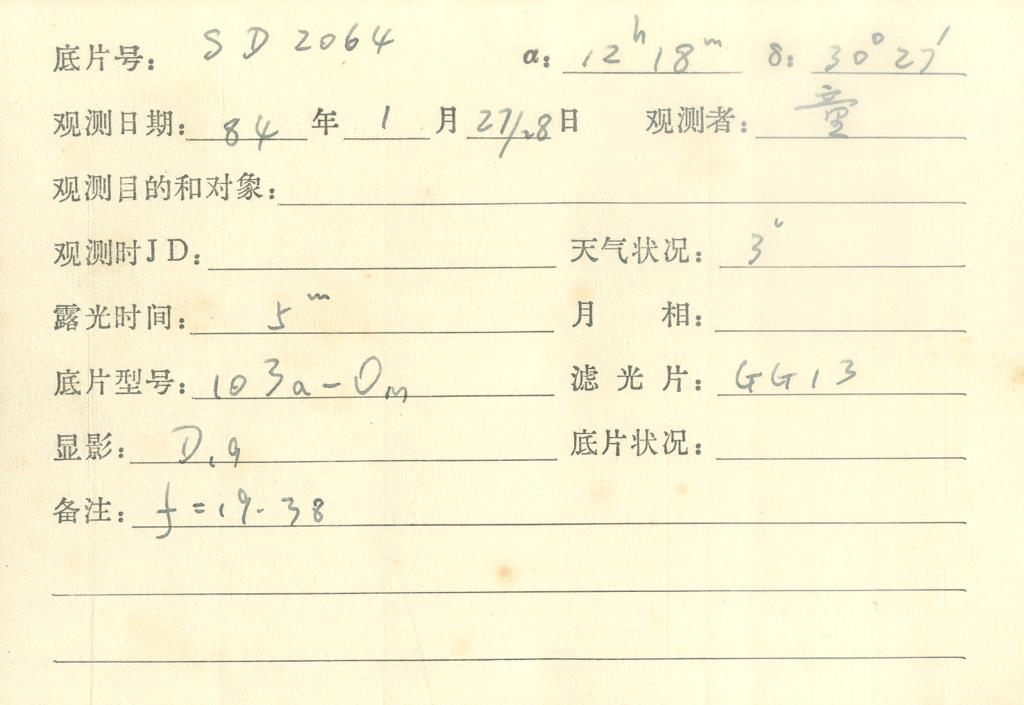 底片号: SD 2064 α: 12ʰ 18ᵐ δ: 30°27′
观测日期: 84 年 1 月 27/28日 观测者: 童
观测目的和对象:
观测时JD: 天气状况: 3
露光时间: 5ᵐ 月 相:
底片型号: 103a-O 滤光片: GG13
显影: D19 底片状况:
备注: f=19.38